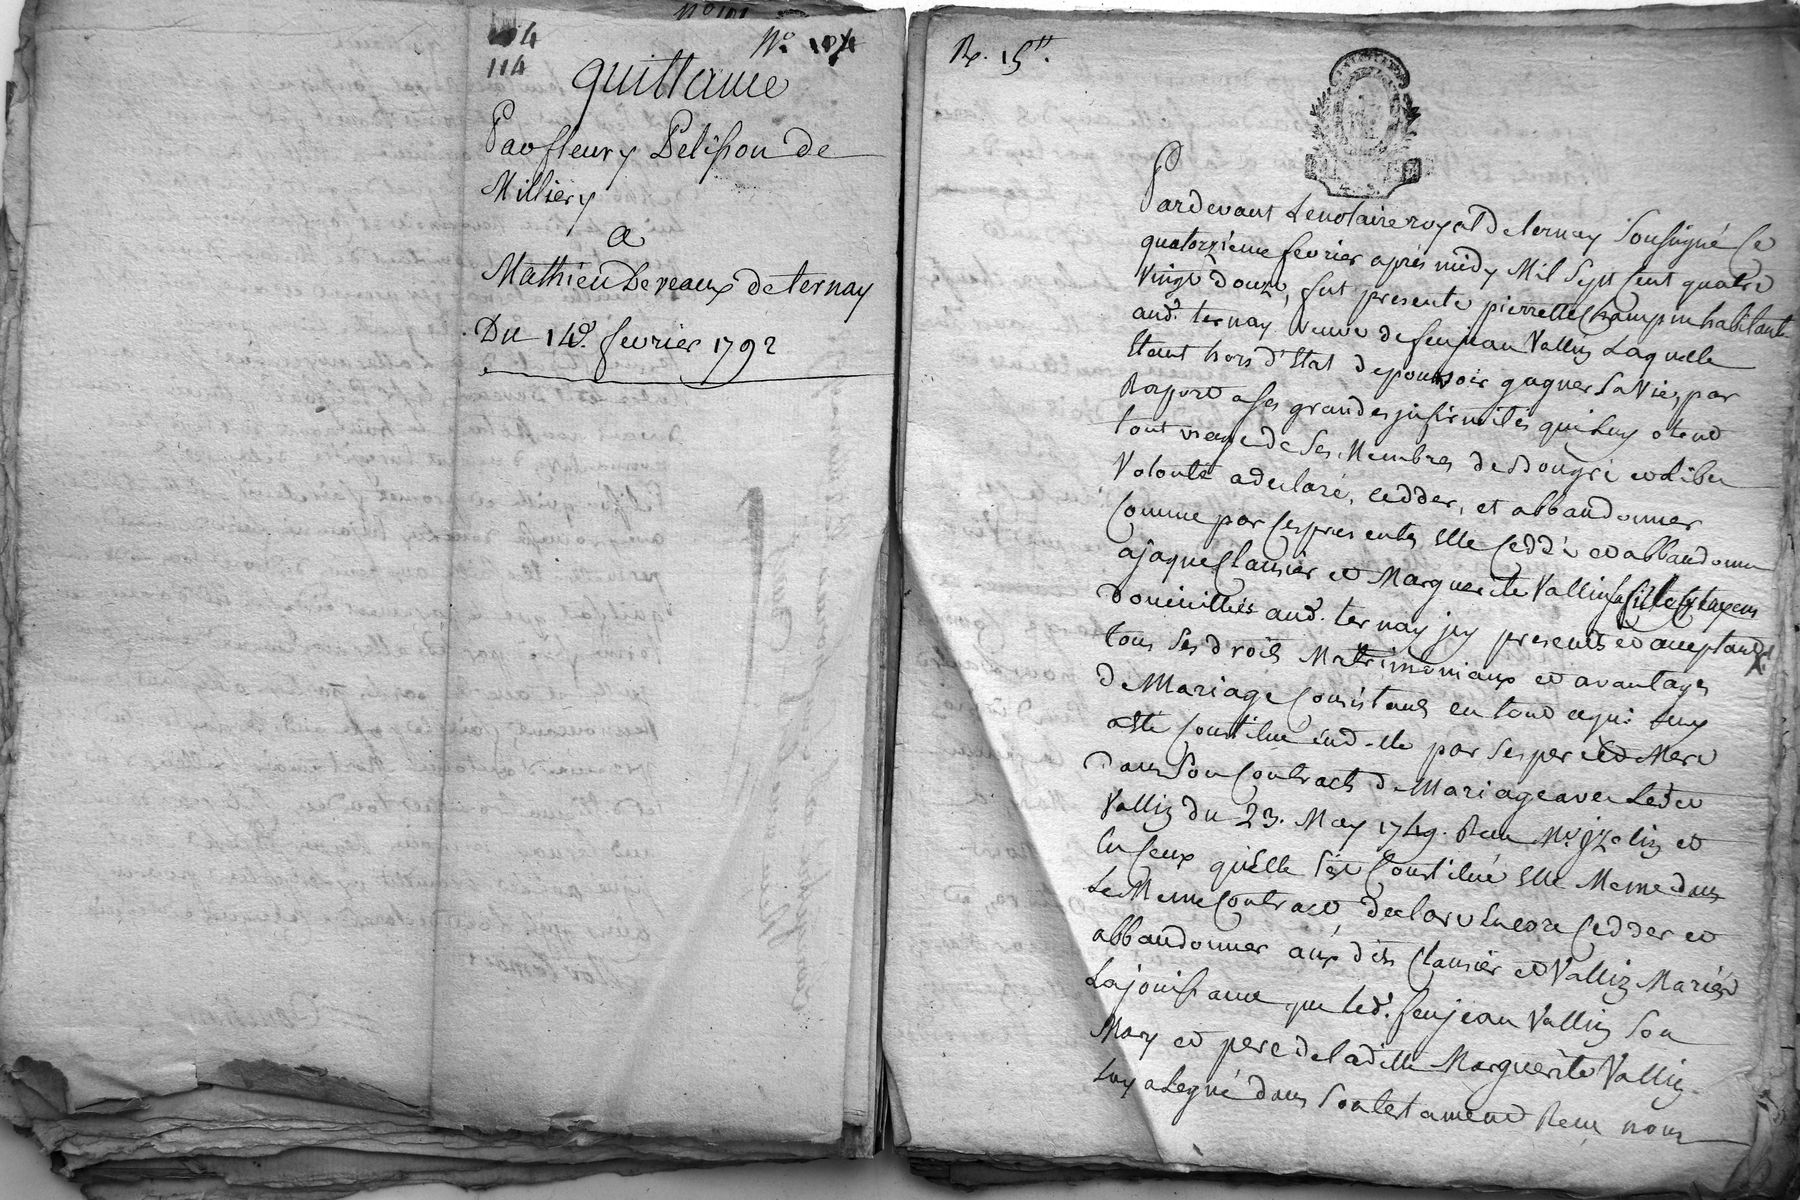 104
114
N.º 104
quittance
Par fleury Pelisson de
Milliery
a
Mathieu Deveaux de ternay
Du 14e. fevrier 1792
R. 15ᵗᵗ.
Pardevant Le notaire royal de ternay soussigné Ce
quatorzieme fevrier après midy Mil Sept Cent quatre
Vingt douze, fut presente pierrette Champin habitante
aud. ternay veuve de feu jean Vallin Laquelle
Etant hors d'Etat de pouvoir gagner Sa Vie, par
Raport a Ses grandes jnfirmités qui Luy otent
tout usage de Ses Membres de Son gré et Libre
Volonté a declaré, cedder, et abbandonner
Comme par Ces presentes Elle Cedde et abbandonne
a jaque Clausier et Marguerite Vallin sa fille
domiciliés aud. ternay jcy presents et acceptants
tous Ses droits Matrimoniaux et avantages
de Mariage Consistants en tout ce qui Luy
a Eté Constitué par Ses pere et Mere
dans Son Contract de Mariage avec Led
Vallin du 23. May 1749. Reçu Mr. et
En Ceux qu'elle S'est Constitué Elle Meme dans
Le Meme Contract declare Encore Cedder et
abbandonner aux dits Clausier et Vallin Mariés
La jouissance que led. feu jean Vallin Son
Mary et pere de la ditte Marguerite Vallin
Luy a Legué dans Son testament Reçu nous